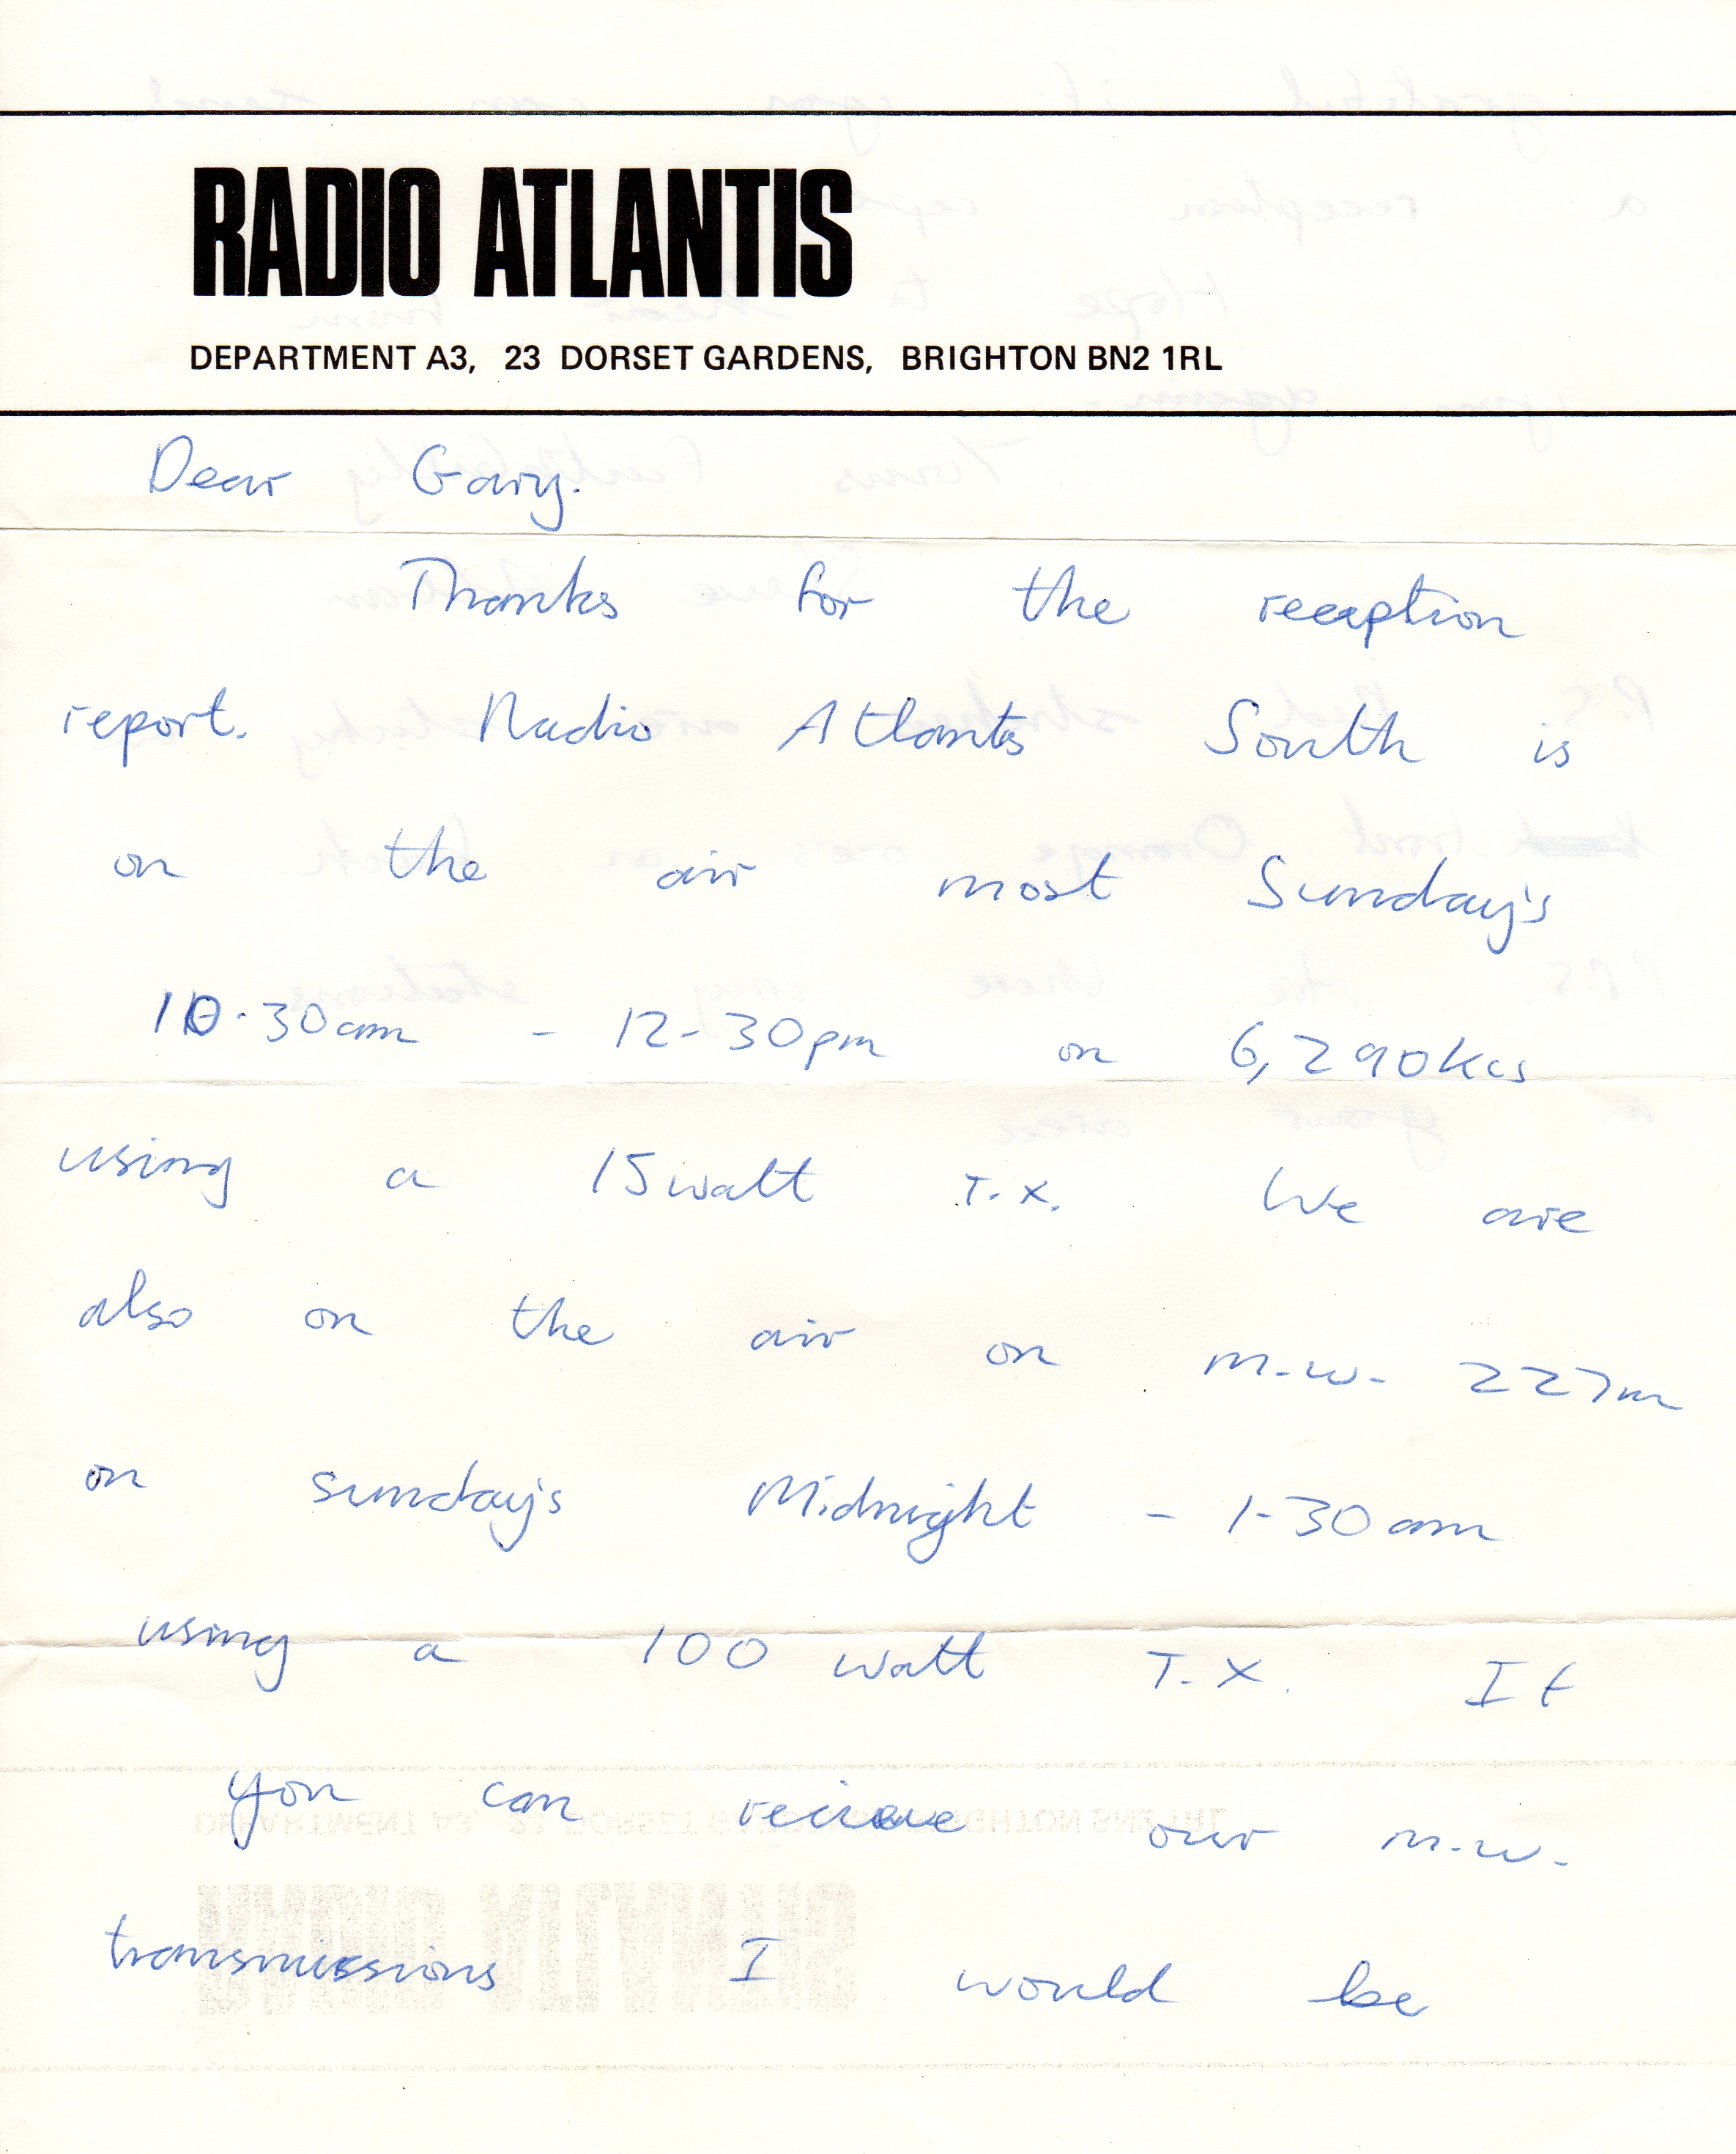 RADIO ATLANTIS
DEPARTMENT A3, 23 DORSET GARDENS, BRIGHTON BN2 1RL
Dear Gary.
Thanks for the reception
report. Radio Atlantis South is
on the air most Sunday's
10.30am - 12-30pm on 6,290Kcs
using a 15watt T.X. We are
also on the air on m.w. 227m
on sunday's Midnight - 1-30am
using a 100 watt T.X. If
you can recieve our m.w.
transmissions I would be